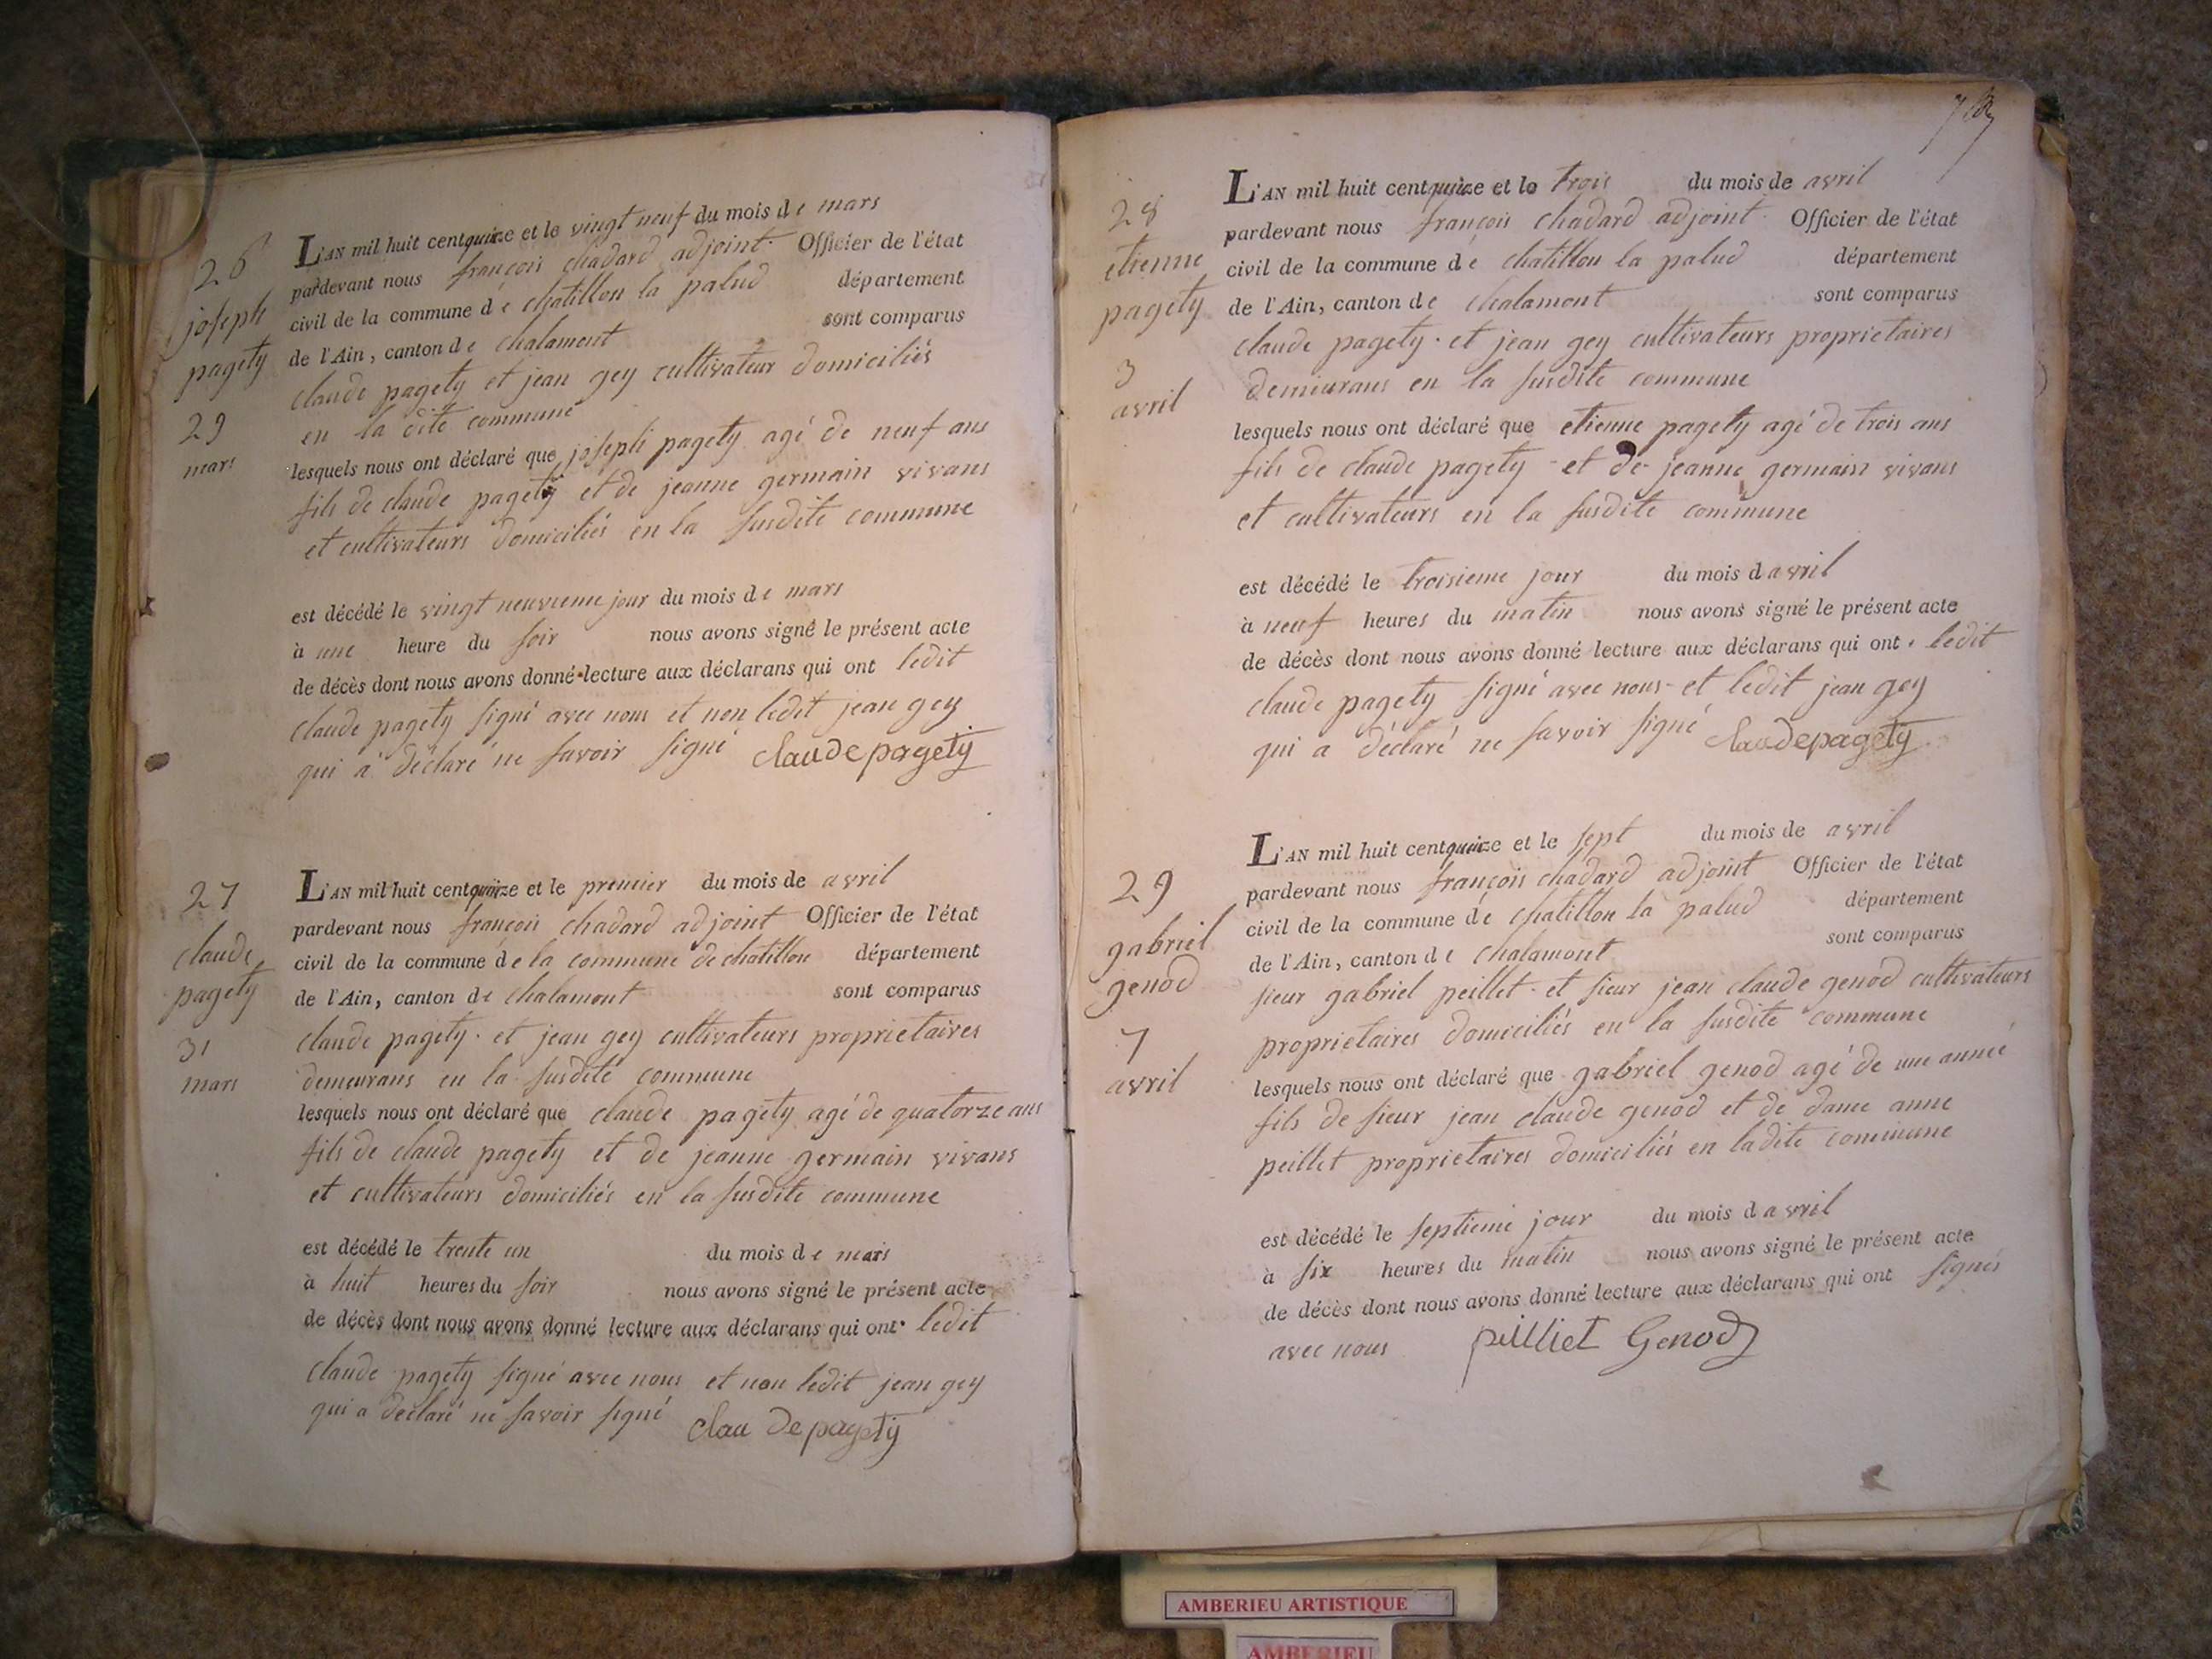 26
joseph
pagety
29
mars
L'AN mil huit cent quinze et le vingt neuf du mois de mars
pardevant nous françois chadard adjoint Officier de l'état
civil de la commune de chatillon la palud département
de l'Ain, canton de chalamont sont comparus
claude pagety et jean gey cultivateur domiciliés
en la dite commune
lesquels nous ont déclaré que joseph pagety agé de neuf ans
fils de claude pagety et de jeanne germain vivans
et cultivateurs domiciliés en la susdite commune
est décédé le vingt neuvieme jour du mois de mars
à une heure du soir nous avons signé le présent acte
de décès dont nous avons donné lecture aux déclarans qui ont ledit
claude pagety signé avec nous et non ledit jean gey
qui a déclaré ne savoir signé claude pagety
27
claude
pagety
31
mars
L'AN mil huit cent quinze et le premier du mois de avril
pardevant nous françois chadard adjoint Officier de l'état
civil de la commune de la commune de chatillon département
de l'Ain, canton de chalamont sont comparus
claude pagety. et jean gey cultivateurs proprietaires
demeurans en la susdite commune
lesquels nous ont déclaré que claude pagety agé de quatorze ans
fils de claude pagety et de jeanne germain vivans
et cultivateurs domiciliés en la susdite commune
est décédé le trente un du mois de mars
à huit heures du soir nous avons signé le présent acte
de décès dont nous avons donné lecture aux déclarans qui ont ledit
claude pagety signé avec nous et non ledit jean gey
qui a declaré ne savoir signé clau de pagety
28
etienne
pagety
3
avril
L'AN mil huit cent quinze et le trois du mois de avril
pardevant nous françois chadard adjoint Officier de l'état
civil de la commune de chatillon la palud département
de l'Ain, canton de chalamont sont comparus
claude pagety. et jean gey cultivateurs proprietaires
demeurans en la susdite commune
lesquels nous ont déclaré que etienne pagety agé de trois ans
fils de claude pagety et de jeanne germain vivans
et cultivateurs en la susdite commune
est décédé le troisieme jour du mois d avril
à neuf heures du matin nous avons signé le présent acte
de décès dont nous avons donné lecture aux déclarans qui ont ledit
claude pagety signé avec nous et ledit jean gey
qui a déclaré ne savoir signé claude pagety
29
gabriel
genod
7
avril
L'AN mil huit cent quinze et le sept du mois de avril
pardevant nous françois chadard adjoint Officier de l'état
civil de la commune de chatillon la palud département
de l'Ain, canton de chalamont sont comparus
sieur gabriel peillet. et sieur jean claude genod cultivateurs
proprietaires domiciliés en la susdite commune
lesquels nous ont déclaré que gabriel genod agé de une année
fils de sieur jean claude genod et de dame anne
peillet proprietaires domiciliés en ladite commune
est décédé le septieme jour du mois d avril
à six heures du matin nous avons signé le présent acte
de décès dont nous avons donné lecture aux déclarans qui ont signés
avec nous peilliet Genod
AMBERIEU ARTISTIQUE
AMBERIEU